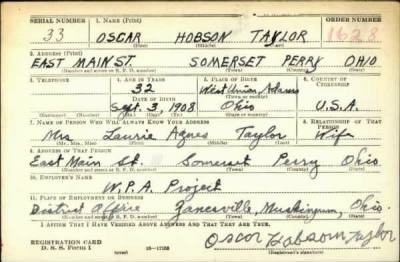 SERIAL NUMBER 1. NAME (Print) ORDER NUMBER
33 OSCAR HOBSON TAYLOR 1628
(First) (Middle) (Last)
2. ADDRESS (Print)
EAST MAIN ST. SOMERSET PERRY OHIO
(Number and street or R. F. D. number) (Town) (County) (State)
3. TELEPHONE 4. AGE IN YEARS 5. PLACE OF BIRTH 6. COUNTRY OF CITIZENSHIP
32 West Union, Adams
DATE OF BIRTH (Town) (County)
Sept. 3, 1908 Ohio U.S.A.
(Exchange) (Number) (Mo.) (Day) (Yr.) (State or country)
7. NAME OF PERSON WHO WILL ALWAYS KNOW YOUR ADDRESS 8. RELATIONSHIP OF THAT PERSON
Mrs Laurie Agnes Taylor Wife
(Mr., Mrs., Miss) (First) (Middle) (Last)
9. ADDRESS OF THAT PERSON
East Main St. Somerset Perry Ohio
(Number and street or R. F. D. number) (Town) (County) (State)
10. EMPLOYER'S NAME
W.P.A. Project
11. PLACE OF EMPLOYMENT OR BUSINESS
District Office Zanesville, Muskingum, Ohio.
(Number and street or R. F. D. number) (Town) (County) (State)
I AFFIRM THAT I HAVE VERIFIED ABOVE ANSWERS AND THAT THEY ARE TRUE.
REGISTRATION CARD
D. S. S. Form 1 16-17105 Oscar Hobson Taylor
(Registrant's signature)